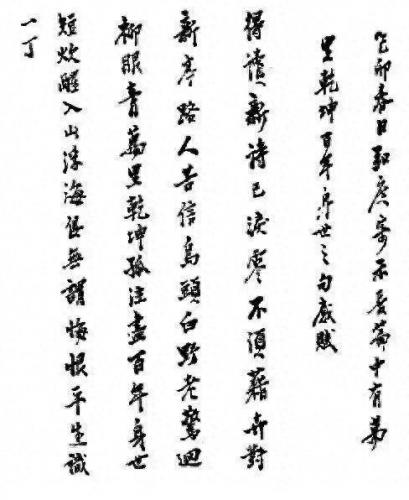 乙卯春日寄示長篇中有萬
里乾坤百年身世之句感賦
得讀新詩已淚零不須藉卉對
新亭路人苦信烏頭白野老驚迴
柳眼青萬里乾坤孤注盡百年身世
短炊醒入山浮海俱無謂悔恨平生識
一丁